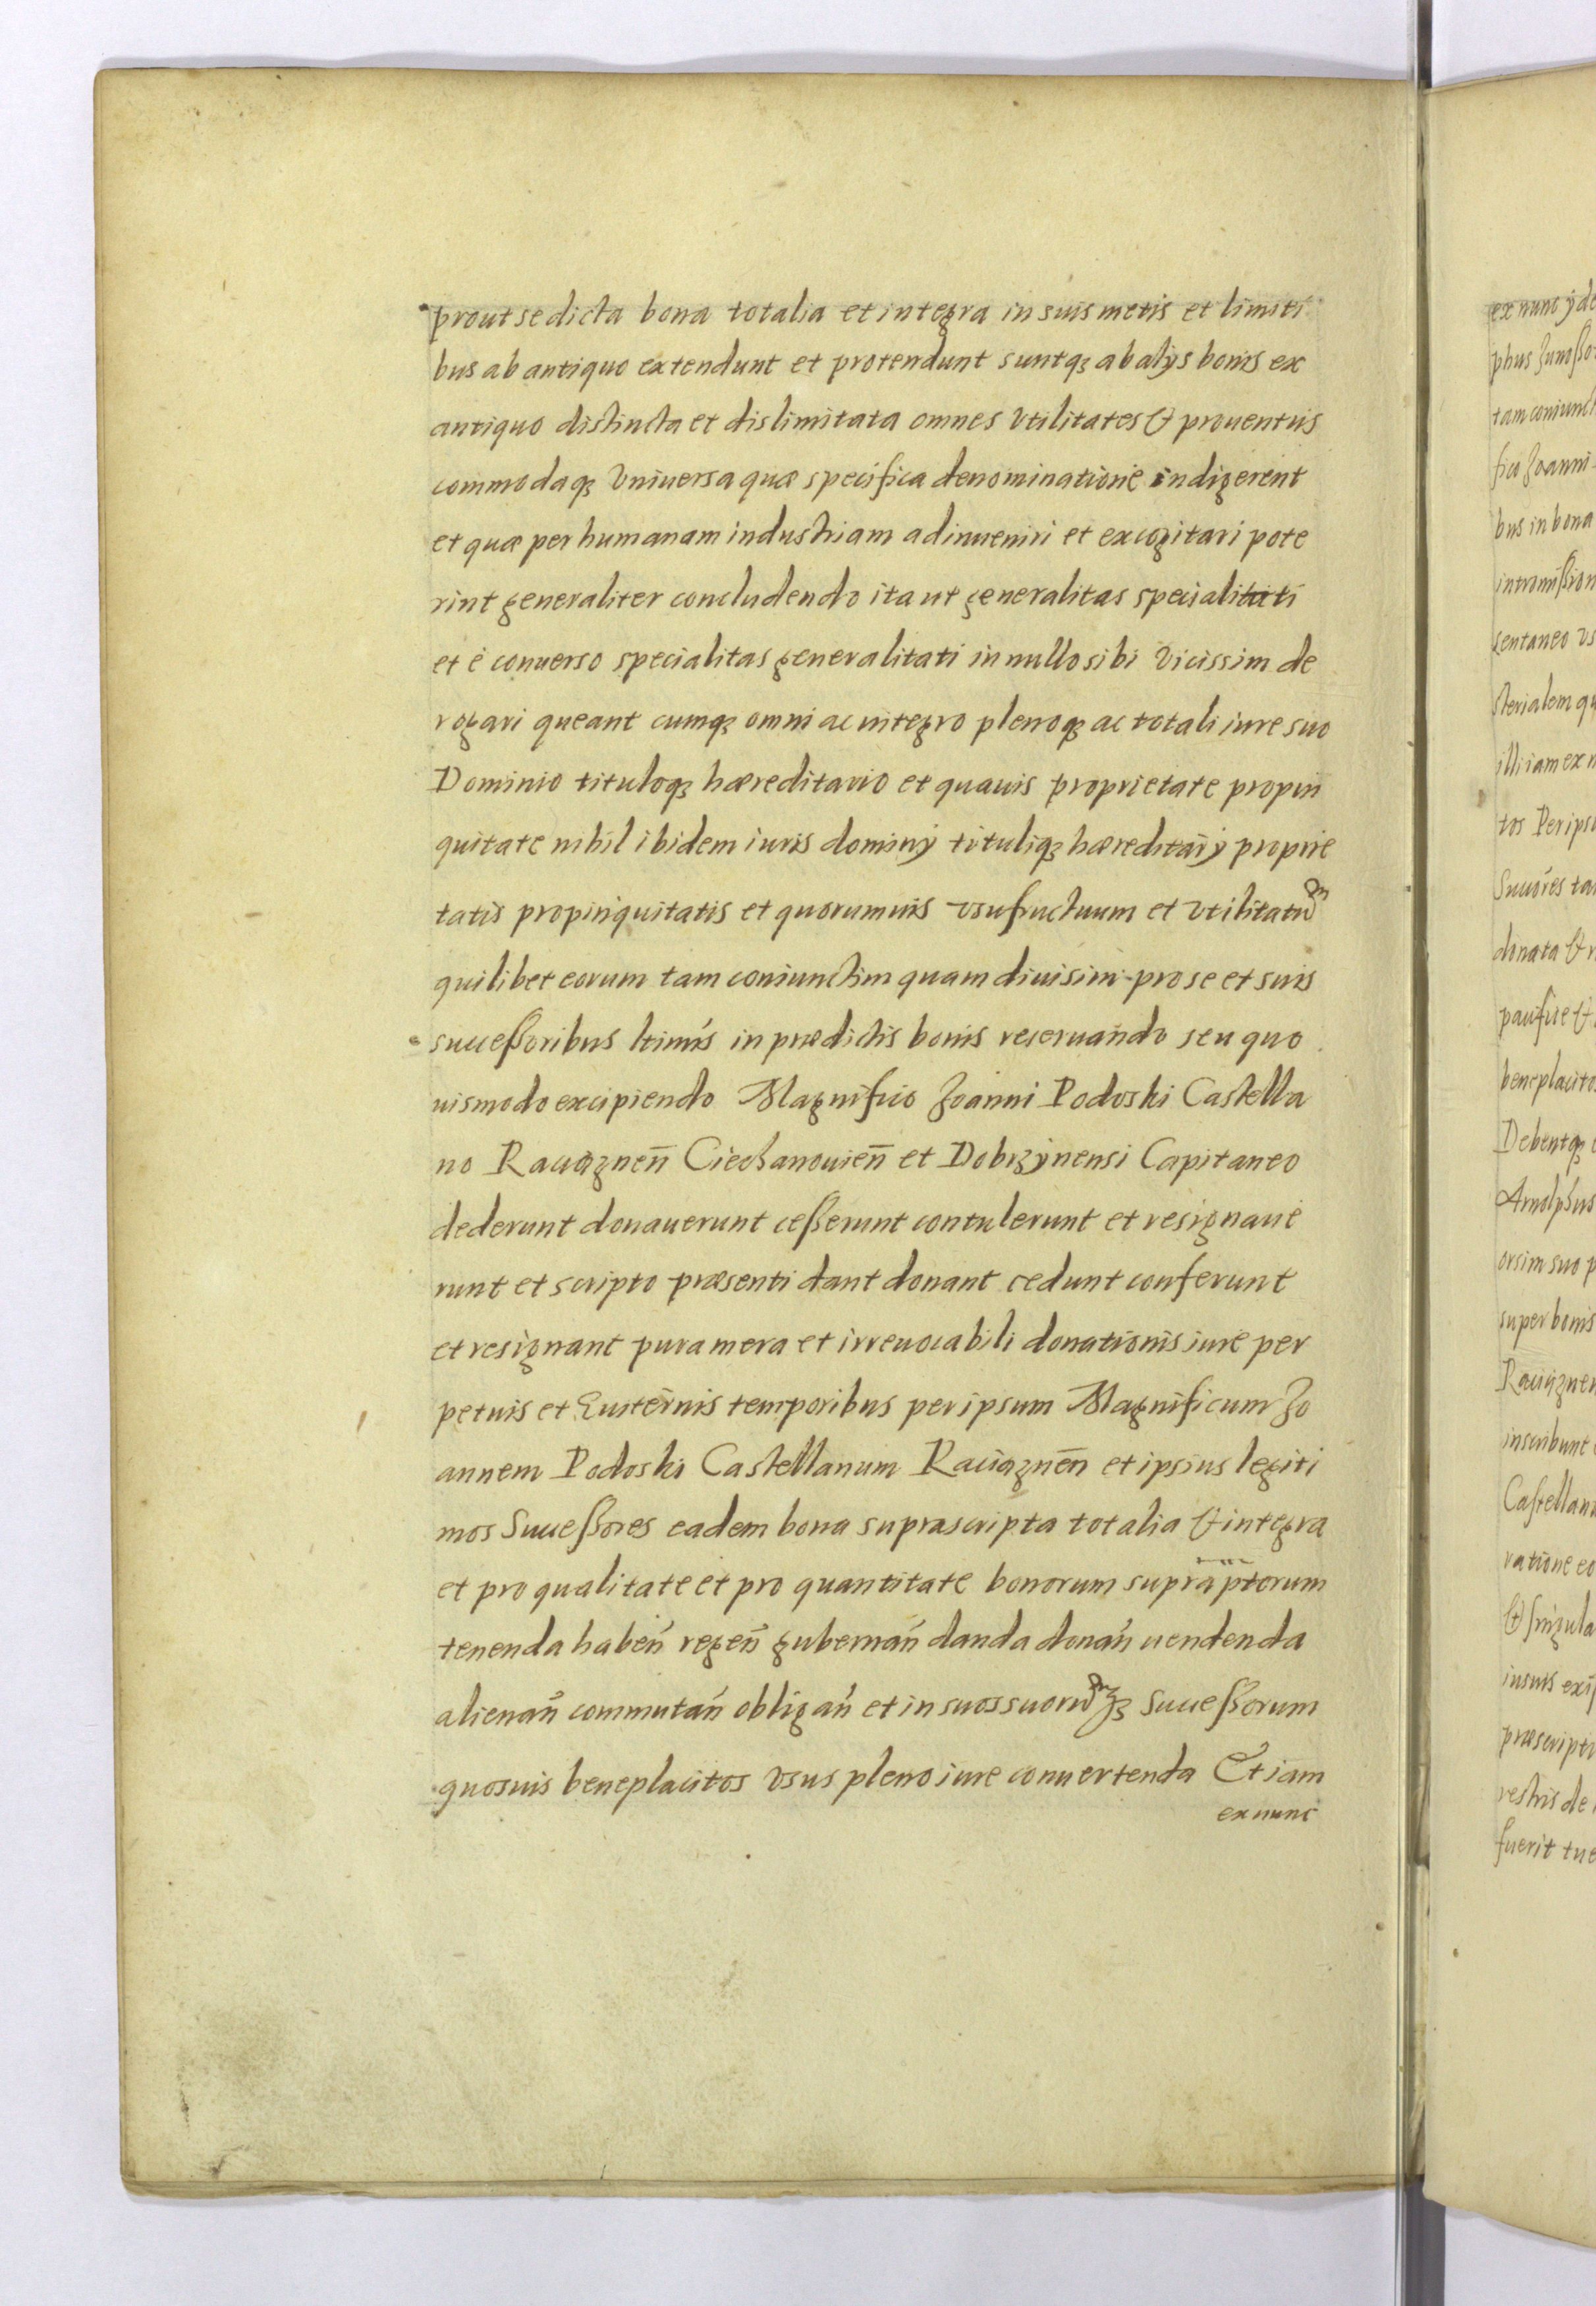 prout se dicta bona totalia et integra in suis metis et limiti
bus ab antiquo extendunt et protendunt suntqȝ ab alijs bonis ex
antiquo distincta et dislimitata omnes vtilitates & prouentus
commodaqȝ Vniuersa quæ specifica denominatione indigerent
et quæ per humanam industriam adinueniri et excogitari pote
rint generaliter concludendo ita ut generalitas specialitati
et è conuerso specialitas generalitati in nullo sibi Vicissim de
rogari queant cumqȝ omni ac integro plenoqȝ ac totali iure suo
Dominio tituloqȝ hæreditario et quauis proprietate propin
quitate nihil ibidem iuris dominij tituliqȝ hæreditarij proprie
tatis propinquitatis et quorumuis vsufructuum et vtilitatum
quilibet eorum tam coniunctim quam diuisim pro se et suis
successoribus ltimis in prædictis bonis reseruando seu quo
uismodo excipiendo Magnifico Joanni Podoski Castella
no Raciąznen̄ Ciechanouien̄ et Dobrzynensi Capitaneo
dederunt donauerunt cesserunt contulerunt et resignaue
runt et scripto præsenti dant donant cedunt conferunt
et resignant pura mera et irreuocabili donationis iure per
petuis et Euiternis temporibus per ipsum Magnificum Jo
annem Podoski Castellanum Raciąznen̄ et ipsius legiti
mos Successores eadem bona suprascripta totalia & integra
et pro qualitate et pro quantitate bonorum supraptorum
tenenda haben̄ regen̄ gubernan̄ danda donan̄ uendenda
alienan̄ commutan̄ obligan̄ et in suos suorumqȝ Successorum
quosuis beneplacitos vsus pleno iure conuertenda Et iam
ex nunc